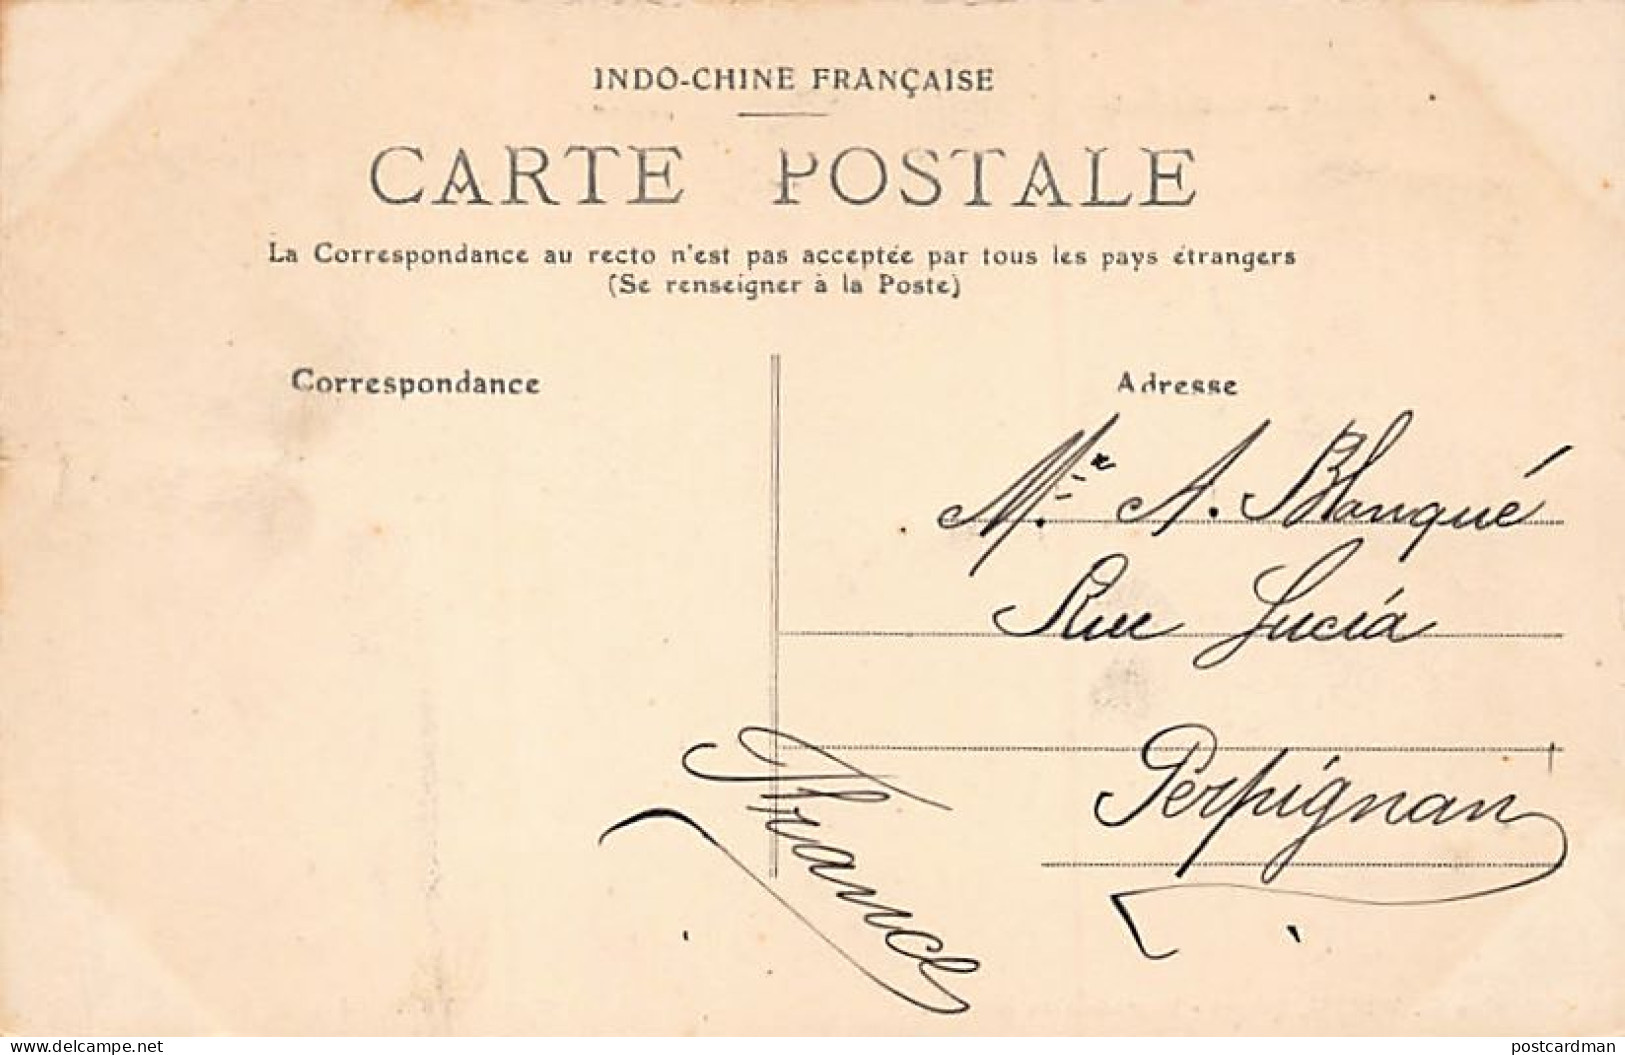 INDO-CHINE FRANÇAISE
CARTE POSTALE
La Correspondance au recto n'est pas acceptée par tous les pays étrangers
(Se renseigner à la Poste)
Correspondance
Adresse
Mr. A. Blanqué
Rue Lucia
Perpignan
France
www.delcampe.net
postcardman